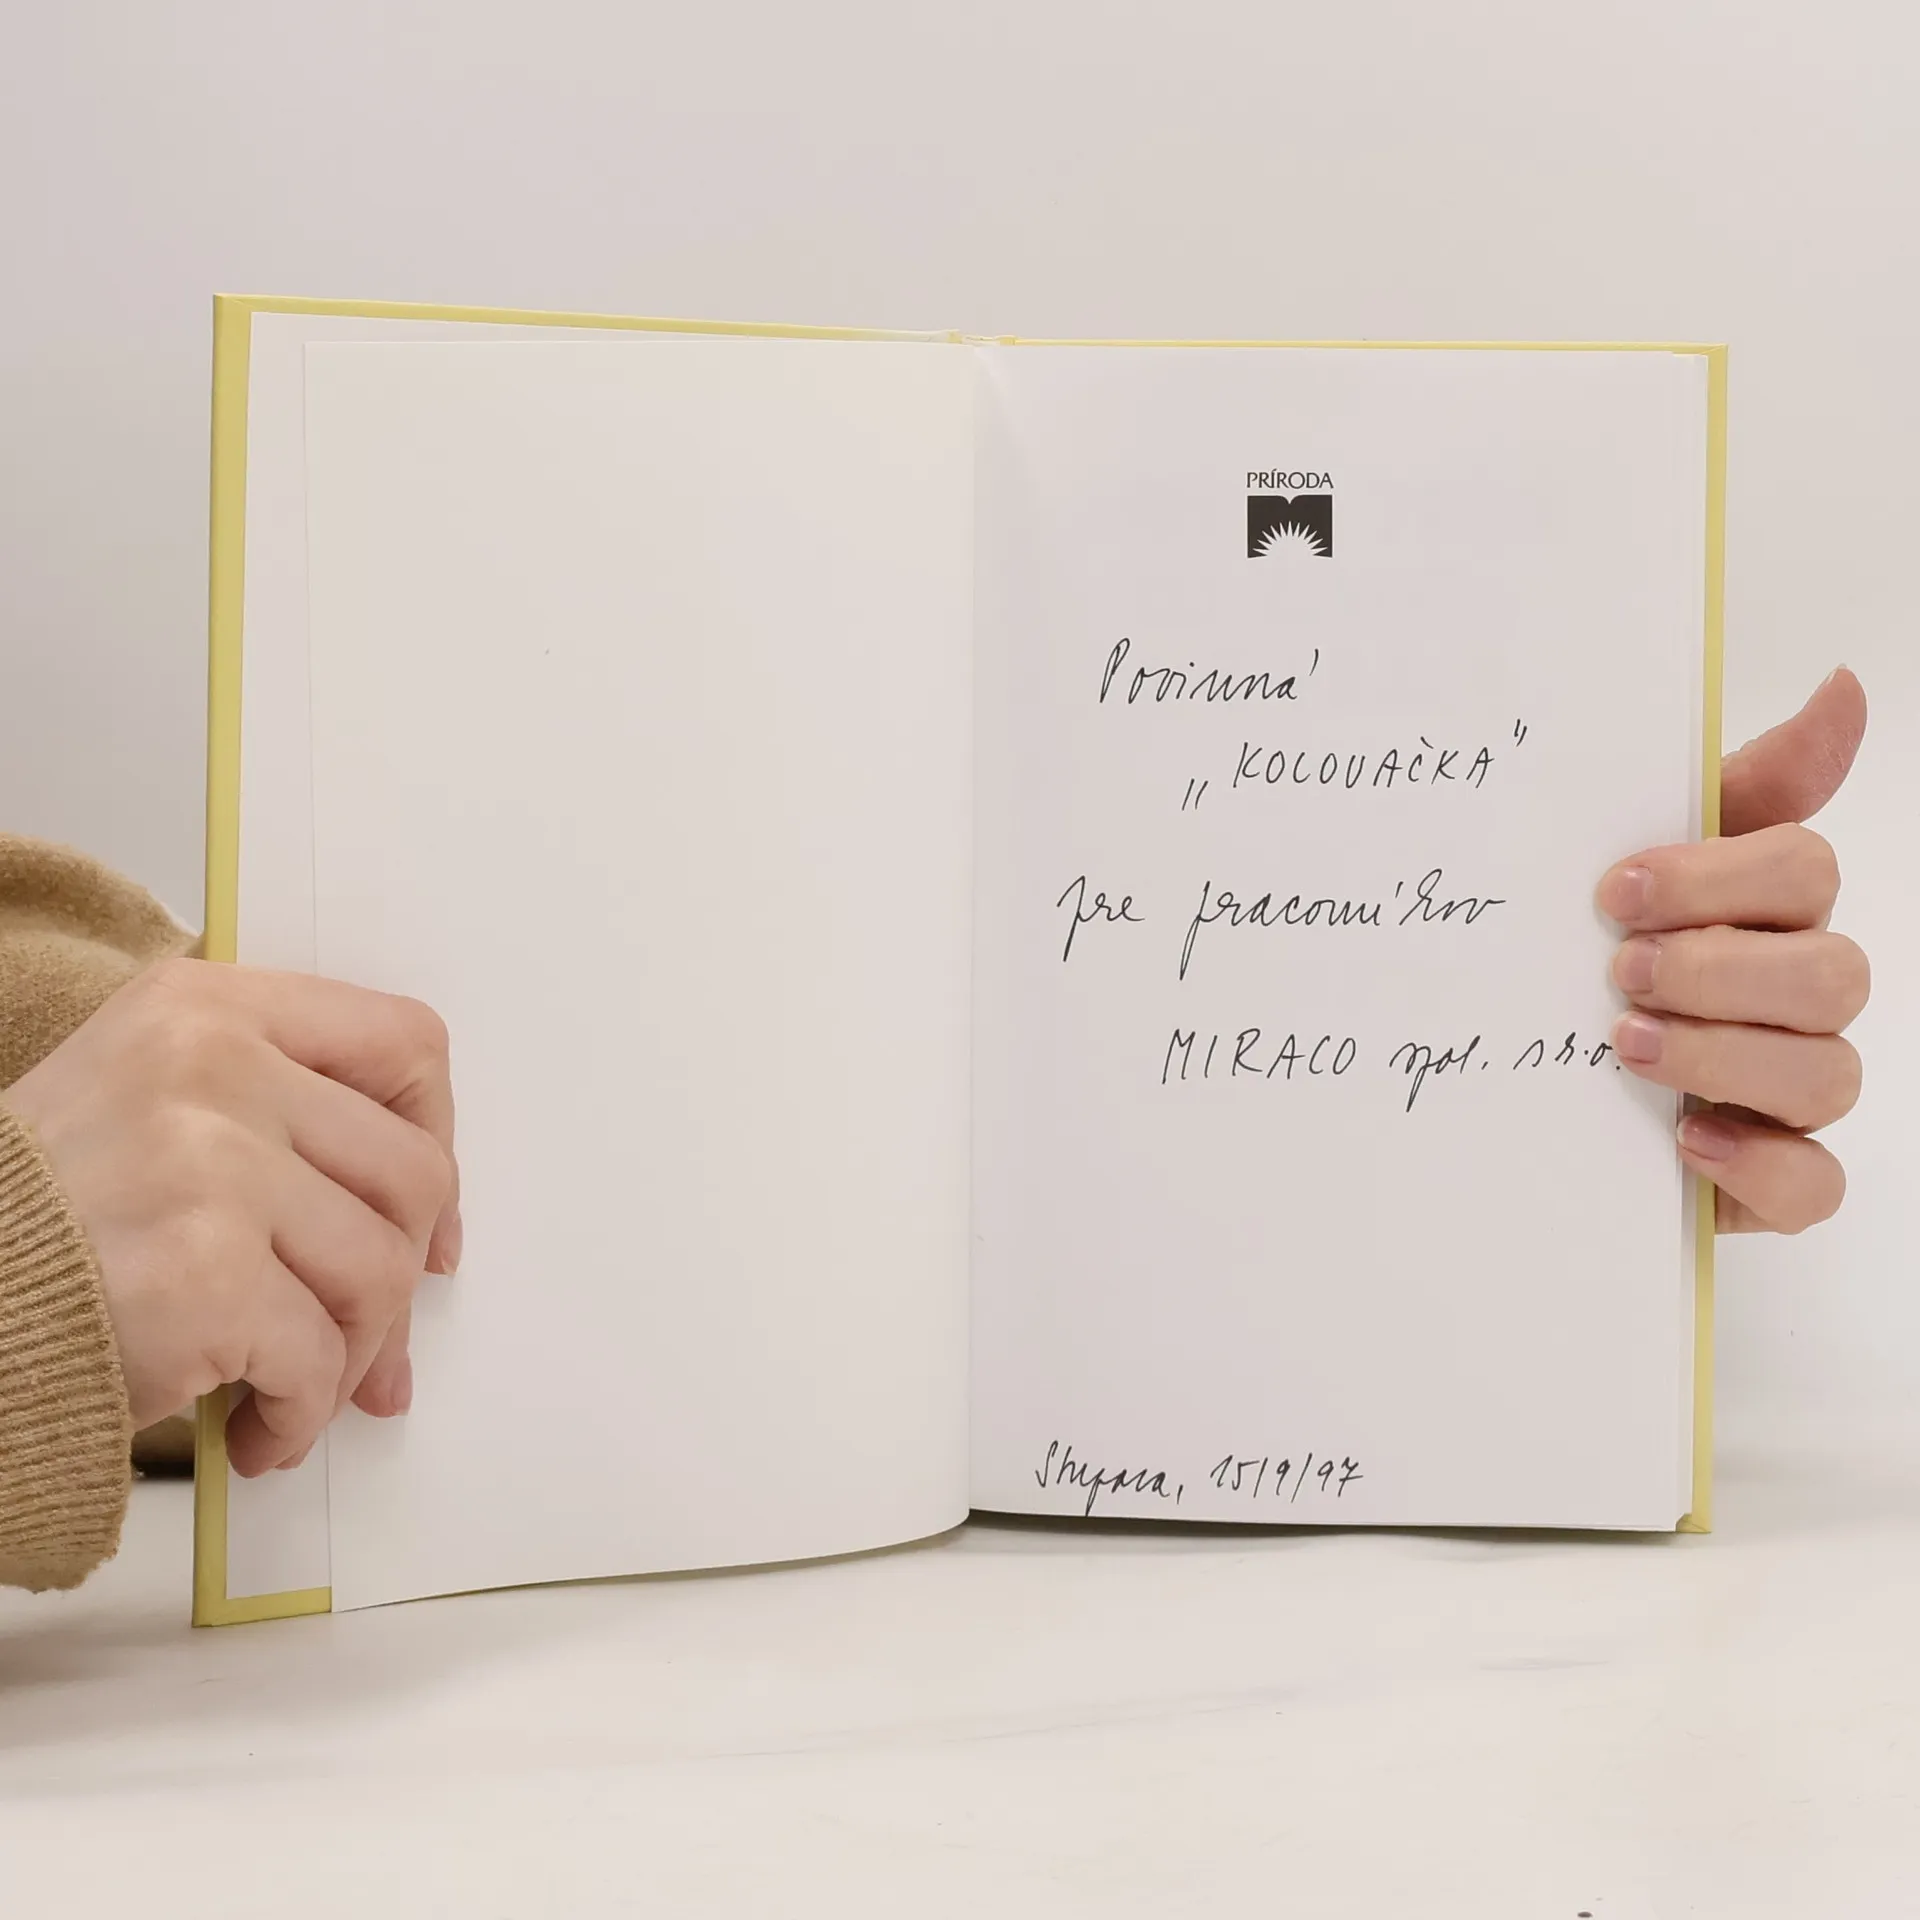 PRÍRODA
Povinná
„KOLOVAČKA"
pre pracovníkov
MIRACO spol. s r.o.
Stupava, 15/9/97